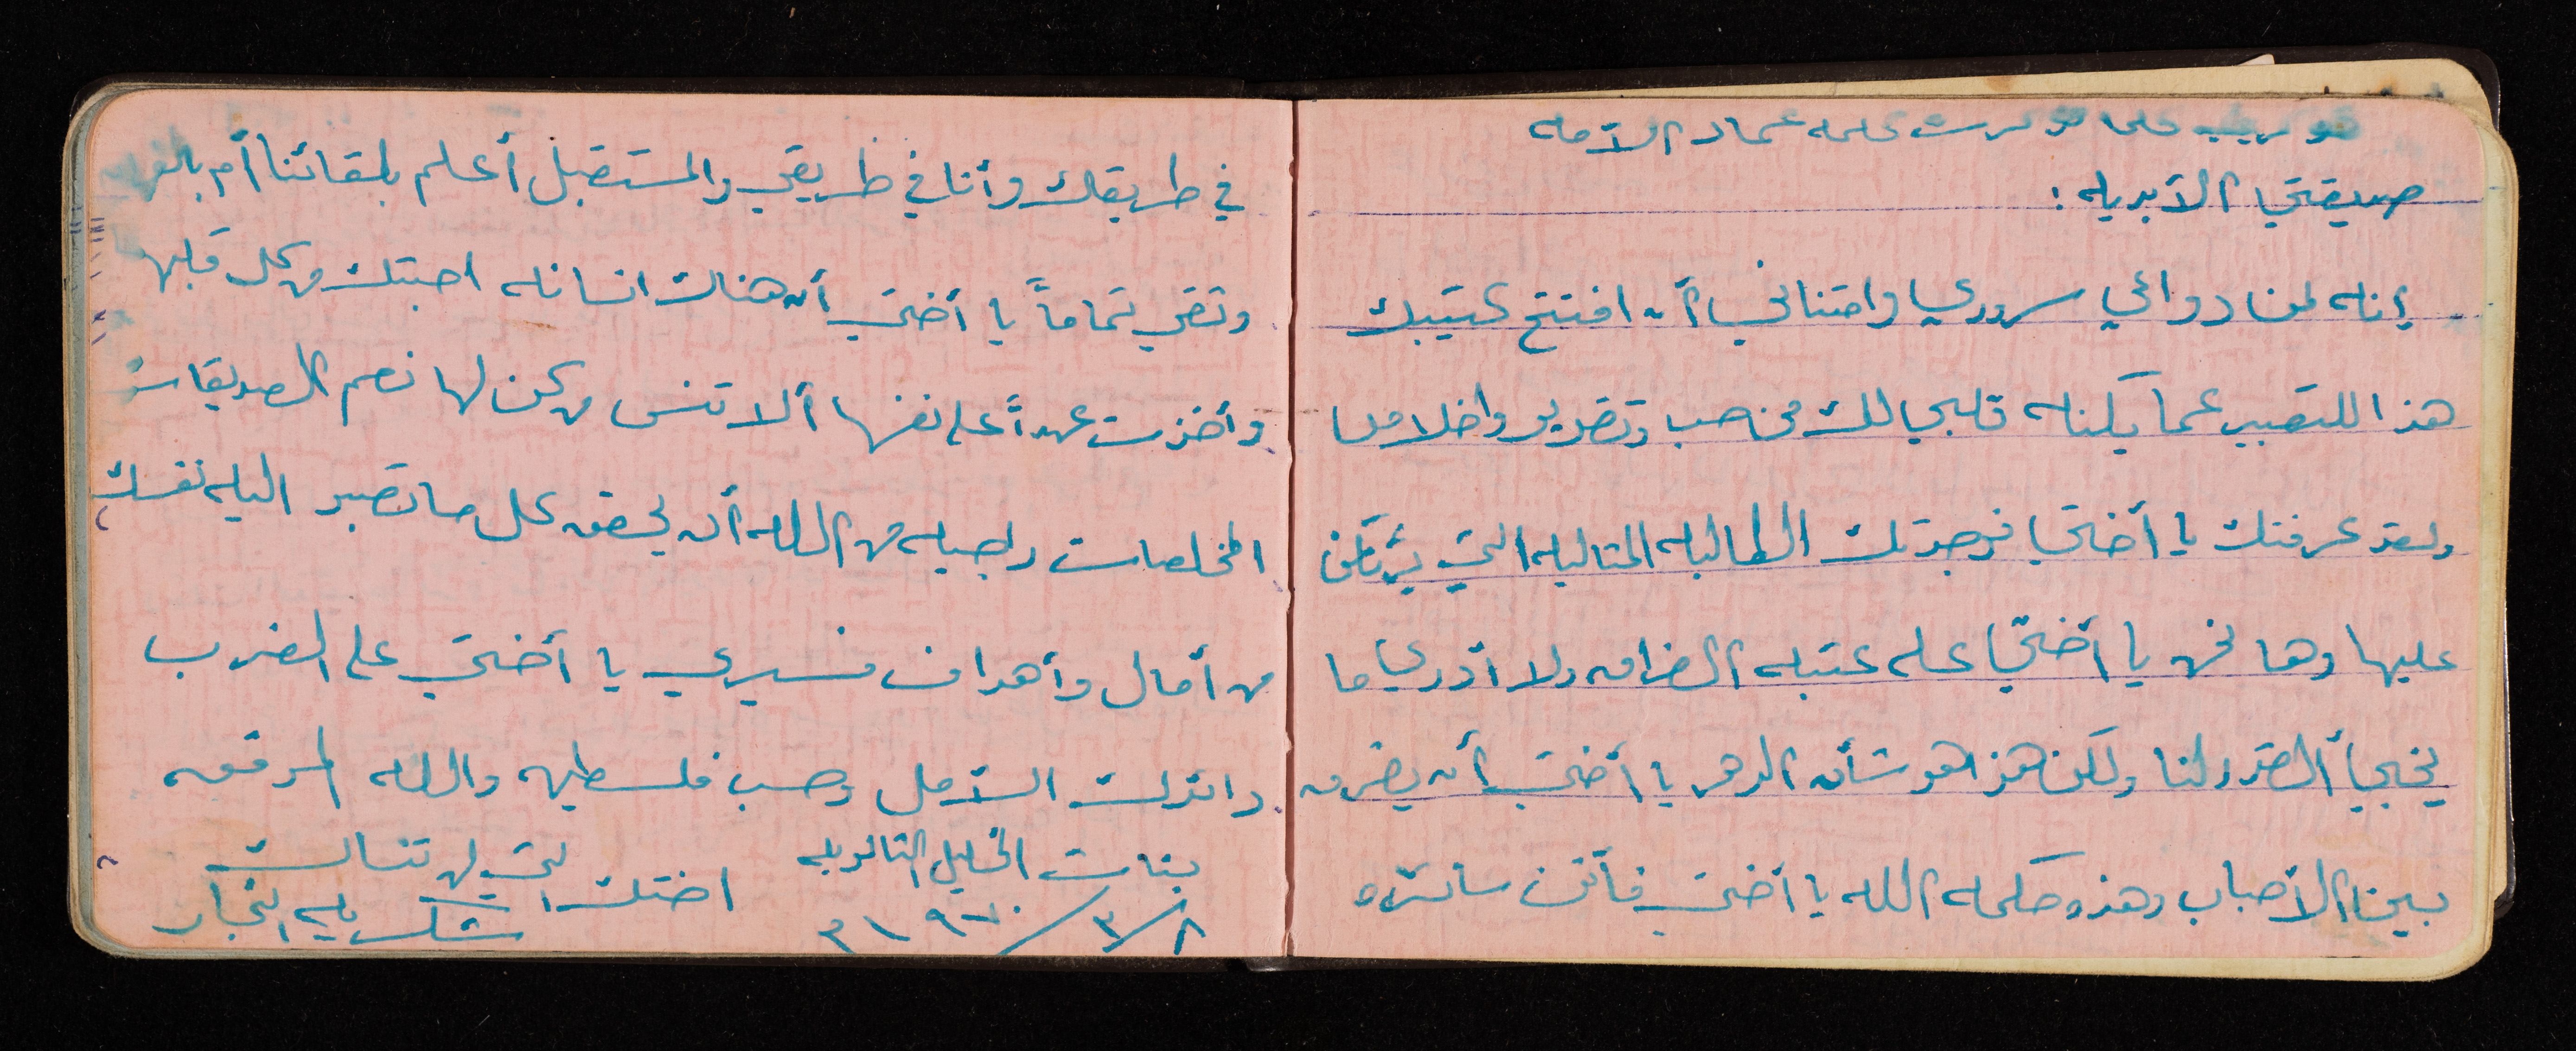 عماد الأمه
صديقتي الأبديه :
إنه لمن دواعي سروري وامتناني أن افتتح كتيبك
هذا للتعبير عما يكنه قلبي لك من حب وتقدير واخلاص
ولقد عرفتك يا أختي فوجدتك الطالبه المثاليه التي يتكل
عليها وها نحن يا أختي على عتبه الفراق ولا أدري ما
يخبيأ القدر لنا ولكن هذا هو شأن الدهر يا أختي أن يفرق
بين الأحباب وهذه حكمه الله يا أختي فأنت سائره
في طريقك وأنا في طريقي والمستقبل أعلم بلقائنا أم
وثقي تماماً يا أختي أن هناك انسانه احبتك من كل قلبها
وأخذت عهداً على نفسها ألا تنسى من كن لها نعم الصديقات
المخلصات راجيه من الله أن يحقق كل ما تصبو اليه نفسك
من أمال وأهداف فسيري يا أختي على الدرب
واتركي الأمل وحب فلسطين والله الموفق
بنات الخليل الثانويه
٨/٣/١٩٧٠م
اختك التي لن تنساك
شكريه النجار